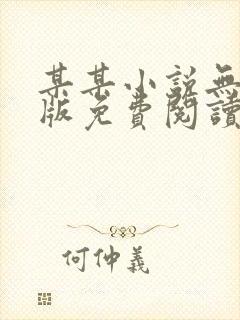 某某小說無
版免費閱讀
何仲義